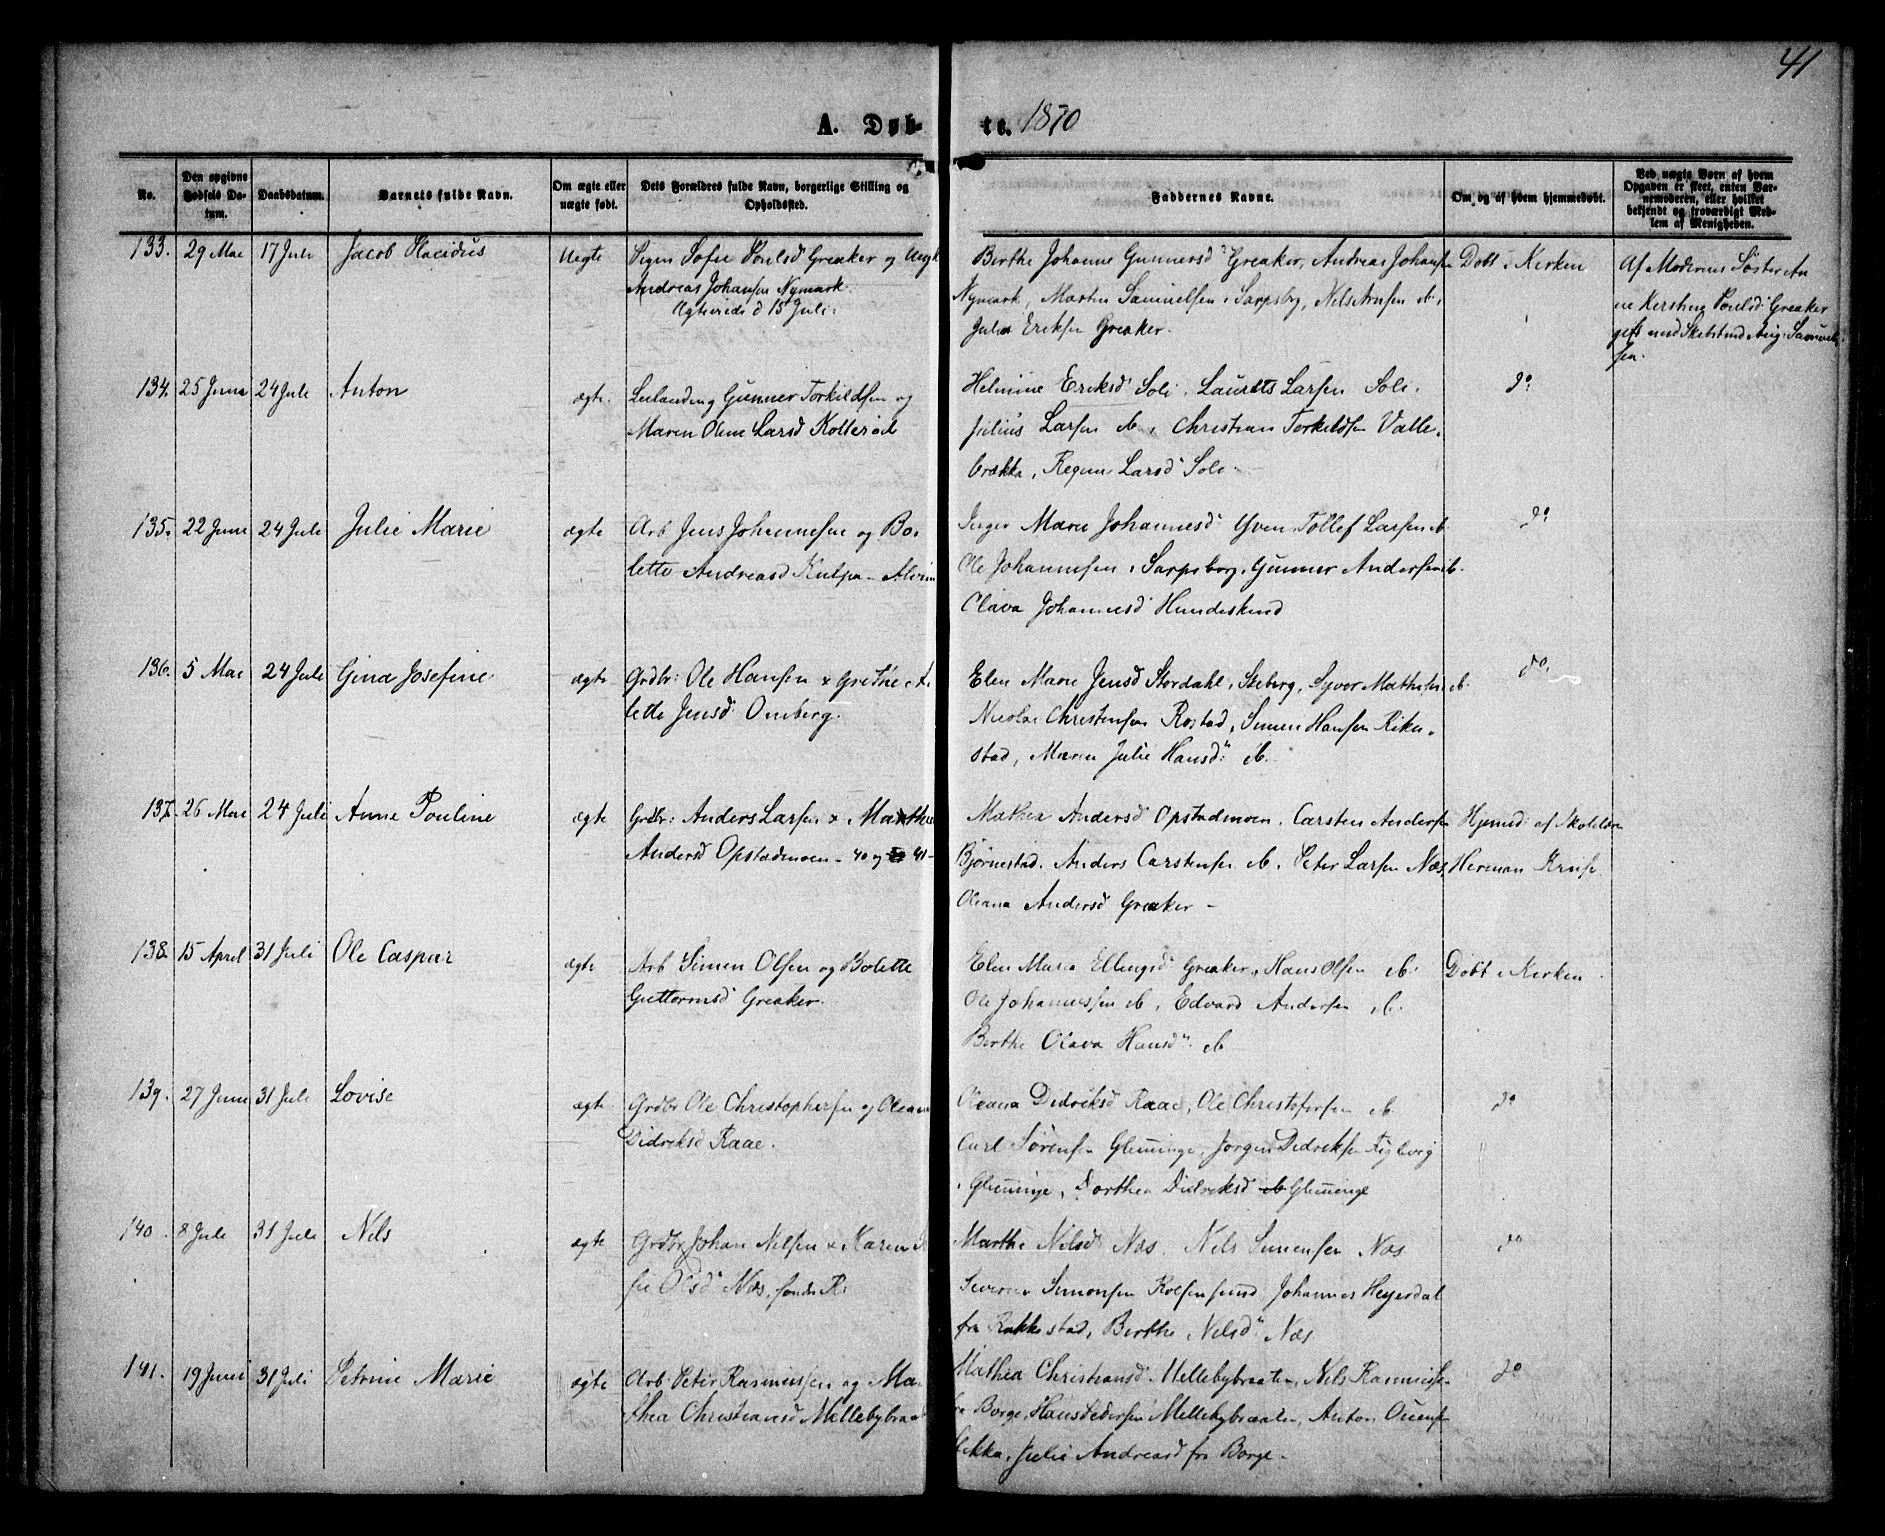 41
A. Døb-te. 1870
No.
Den opgivne Fødsels Datum.
Daabsdatum.
Barnets fulde Navn.
Om ægte eller uægte født.
Dets Forældres fulde Navn, borgerlige Stilling og Opholdssted.
Faddernes Navne.
Om og af hvem hjemmedøbt.
Ved uægte Børn af hvem Opgaven er skeet, enten Barnemoderen, eller hvilket bekjendt og troværdigt Medlem af Menigheden.
133. 29 Mai 17 Juli Jacob Placidus Uegte Pigen Sofie Poulsd Greaker og Ungk
Andreas Johansen Nymark.
Ægteviede d 15 Juli.
Berthe Johanne Gunnersd Greaker, Andreas Johansen
Nymark, Martin Samuelsen i Sarpsbg, Nils
Julia Eriksen Greaker.
Døbt i Kirken
Af Moderens Søster An
ne Kirstine Poulsd Greaker
gift med Aug. Samuel
sen.
134. 25 Juni 24 Juli Anton ægte. Leilænding Gunner Torkildsen og
Maren Oline Larsd Kollerød
Helmine Eriksd Soli, Laurits Larsen Soli.
Julius Larsen ib, Christian Torkildsen Valle-
brækka, Larsd Soli.
do
135. 22 Juni 24 Juli Julie Marie ægte Arb Jens Johannesen og Bo-
lette Andreasd Kulpa
Inger Marie Johannesd Yven Tollef Larsen ib.
Ole Johannesen, Sarpsborg, Gunner Andersen ib.
Olava Johannesd Hundeskind
do
136. 5 Mai 24 Juli Gina Josefine ægte Grdbr: Ole Hansen & Grethe
lette Jensd Omberg.
Elen Marie Jensd Stordahl, Skeberg, Syver Mathisen ib.
Nicolai Christensen Rostad, Simen Hansen Riker-
stad, Maren Julie Hansd ib.
do.
137. 26 Mai 24 Juli Anne Pouline ægte Grdbr: Anders Larsen & Marthe
Andersd Opstadmoen - 40 og 41 -
Mathea Andersd Opstadmoen. Carsten Andersen
Bjørnestad. Anders Carstensen ib. Peter Larsen Næs,
Oleana Andersd Greaker -
Hjemmed: af Skolelærer
Herman Kruse
138. 15 April 31 Juli Ole Caspar ægte Arb Simen Olsen og Bolette
Guttormsd Greaker.
Elen Maria Ellingsd Greaker, Hans Olsen ib.
Ole Johannessen ib, Edvard Andersen ib.
Berthe Olava Hansd ib
Døbt i Kirken
139. 27 Juni 31 Juli Lovise ægte Grdbr Ole Christophersen og Oleana
Didriksd Raae.
Oleana Didriksd Raae, Ole Christofersen ib
Carl Sørensen Glemminge, Jørgen Didriksen
i Glemminge, Dorthea Didriksd Glemminge
do
140. 8 Juli 31 Juli Nils ægte Grdbr Johan Nilsen & Karen
fie Olsd Næs, søndre
Marthe Nilsd Næs. Nils Simensen Næs
Severin Simonsen Johannes Heyerdal
fra Rakkestad, Berthe Nilsd Næs
do
141. 19 Juni 31 Juli Petrine Marie ægte Arb: Peter Rasmussen og Ma-
thea Christiansd Mellebybraat
Mathea Christiansd Mellebybraaten, Nils Rasmussen
Borge, Hans Pedersen Mellebybraaten, Anton
Julie Andreasd fra Borge.
do